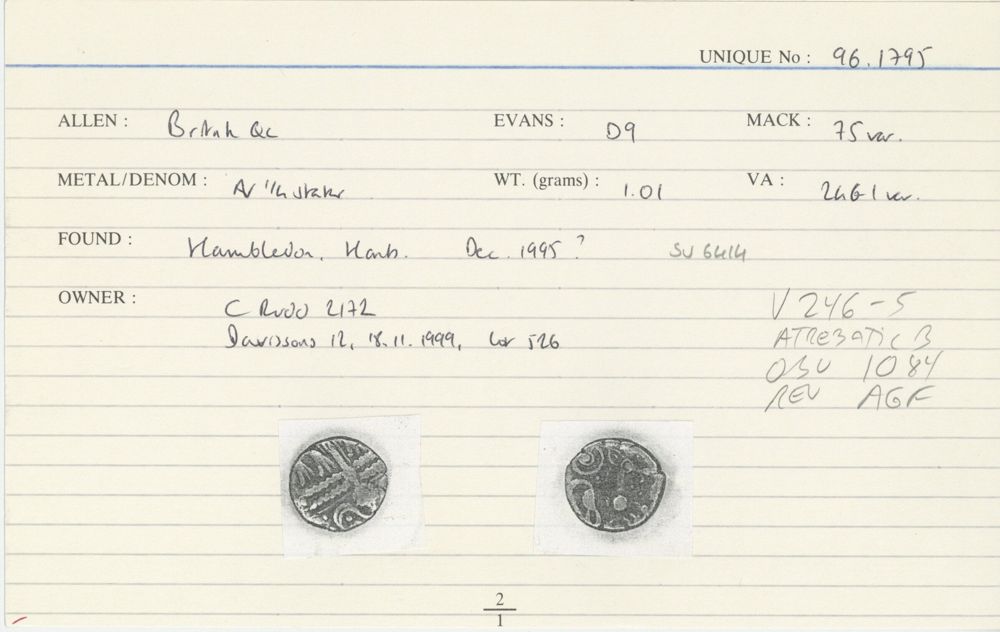 UNIQUE No : 96.1795
ALLEN : British Qc EVANS : D9 MACK : 75 var.
METAL/DENOM : AV 1/4 stater WT. (grams) : 1.01 VA : 246-1 var.
FOUND : Hambledon, Hants. Dec. 1995 ? SU 6414
OWNER : C Rudd 2172
Davissons 12, 18.11.1999, Lot 526
V 246-5
ATREBATIC B
OBV 1084
REV AGF
2
1